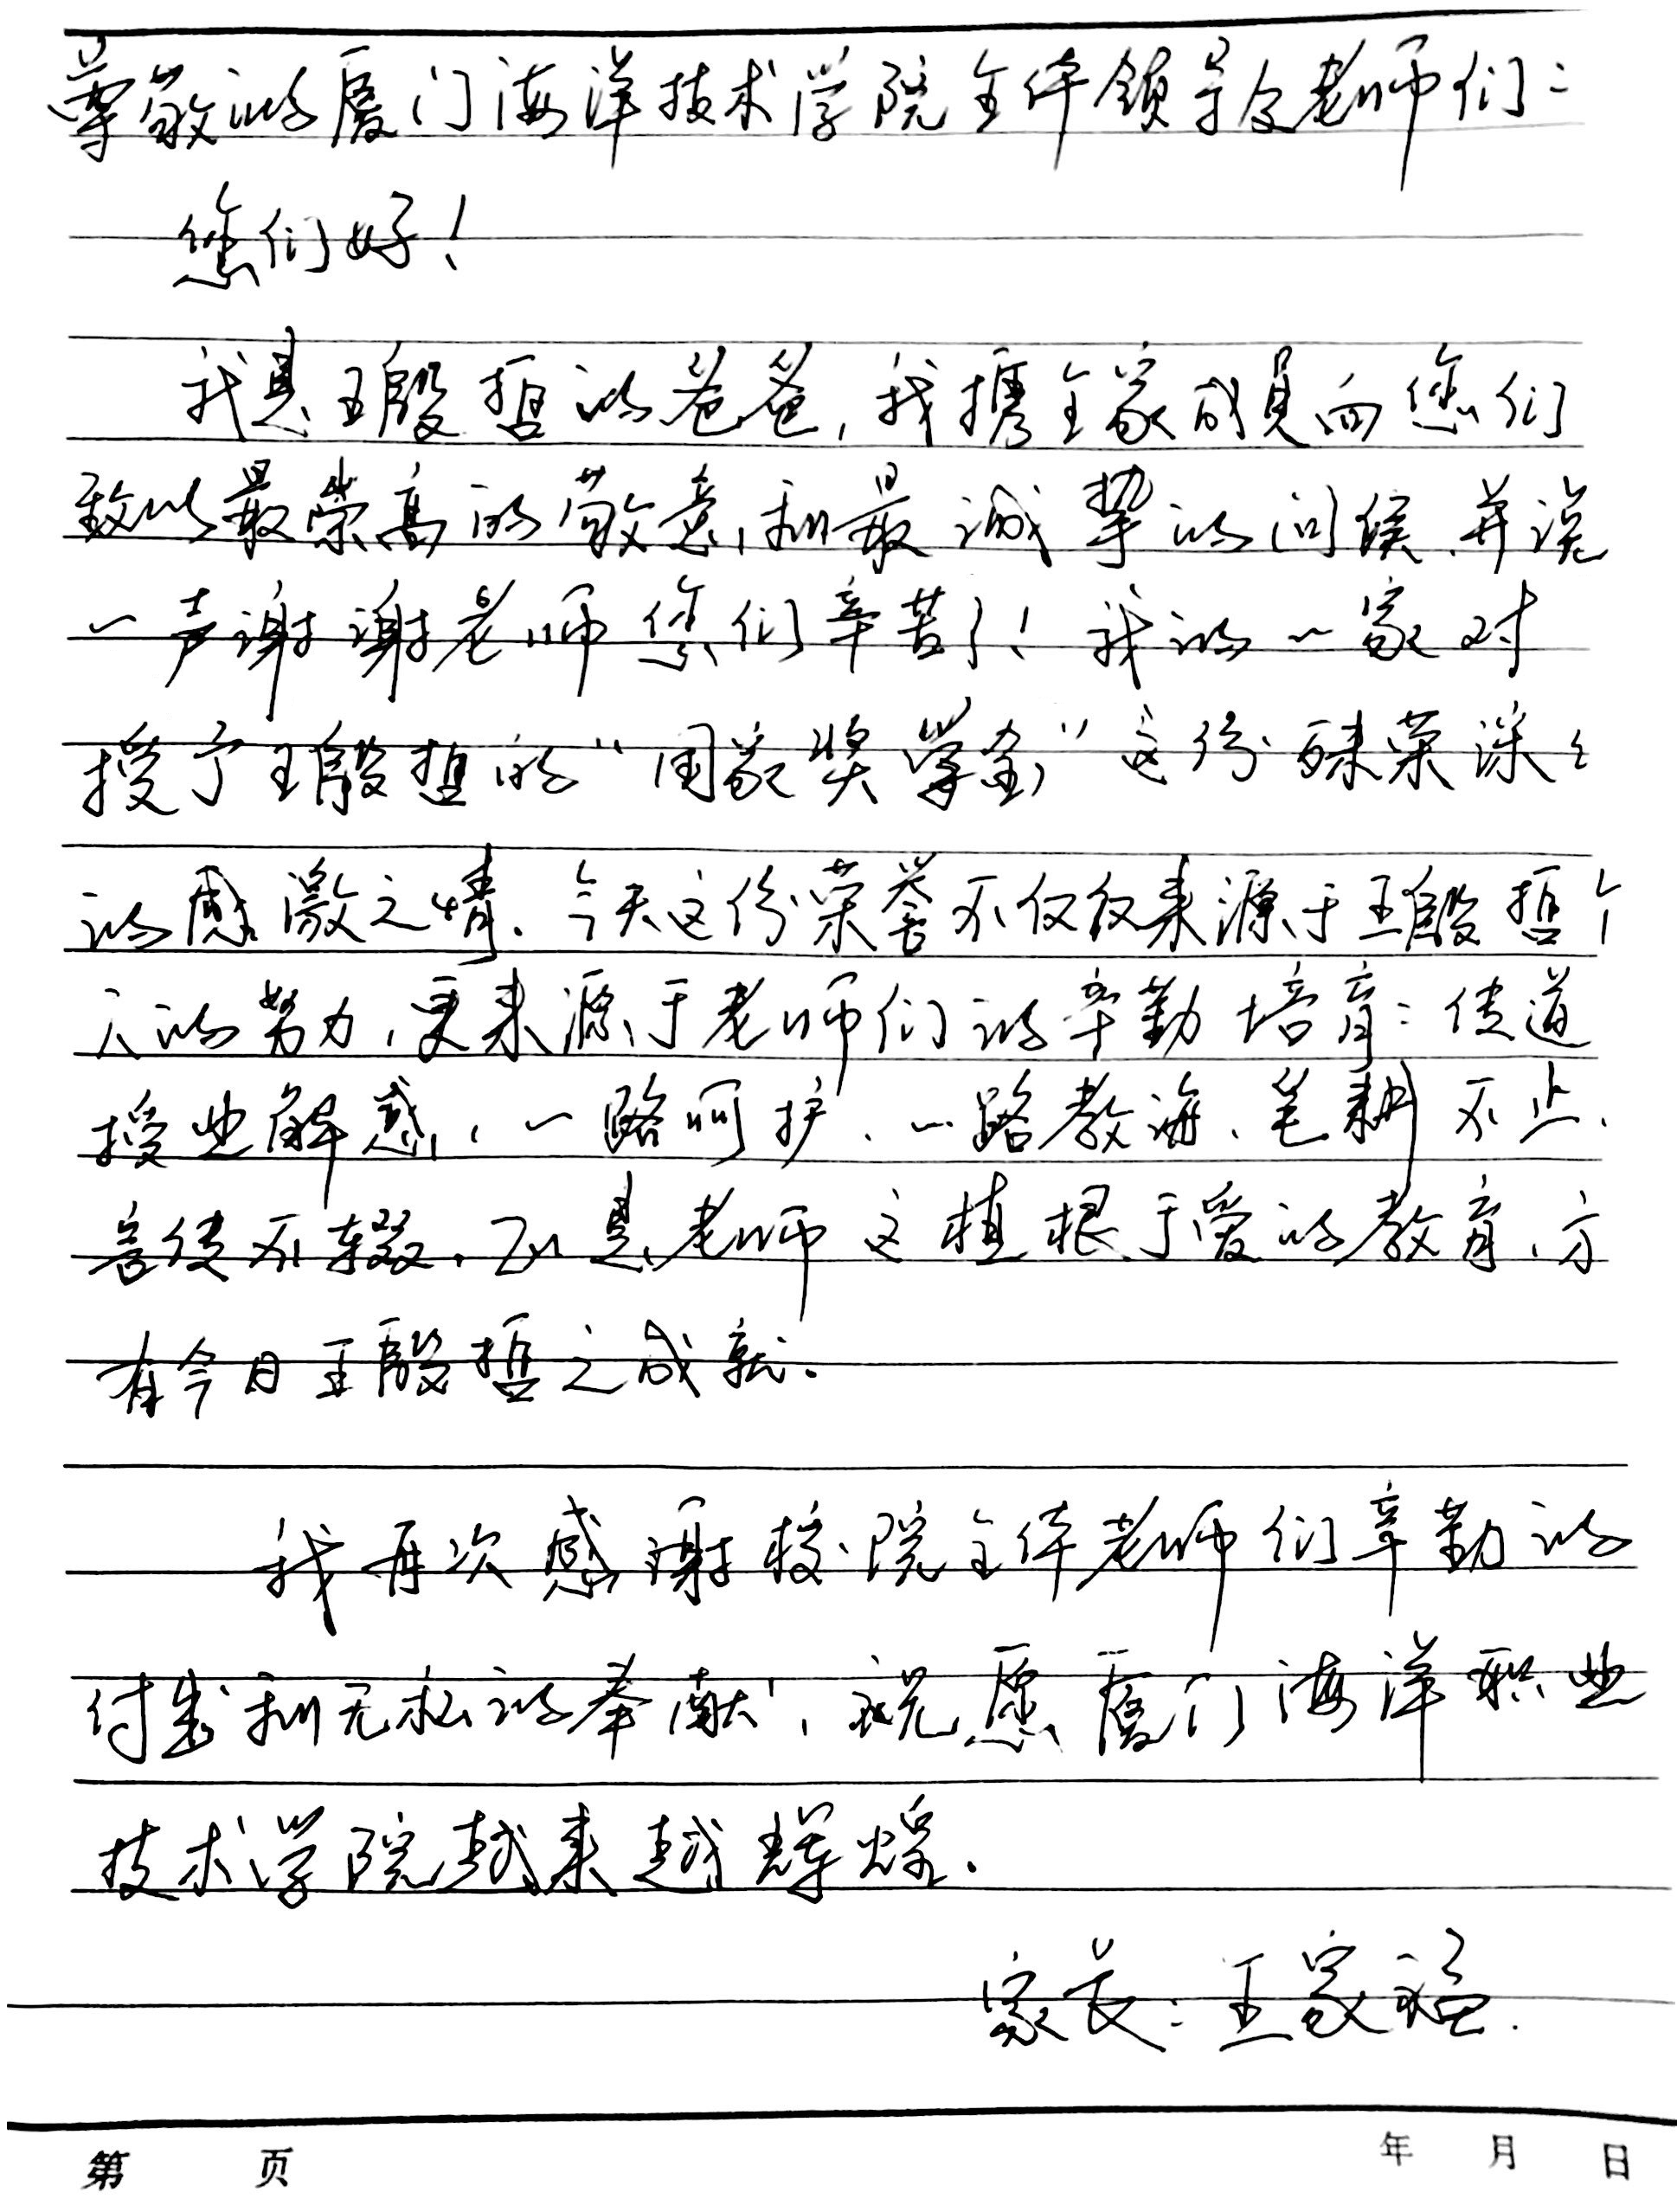 尊敬的厦门海洋技术学院全体领导及老师们:
您们好!
我是王殷哲的爸爸,我携全家成员向您们
致以最荣高的敬意,和最诚挚的问候、并说
一声谢谢老师您们辛苦了!我的一家对
授予王殷哲的“国家奖学金”这份殊荣深々
的感激之情、今天这份荣誉不仅仅来源于王殷哲个
人的努力,更来源于老师们的辛勤培育:传道
授业解惑,一路呵护、一路教诲、笔耕不止、
言传不辍.正是老师这植根于爱的教育、方
有今日王殷哲之成就.
我再次感谢校院全体老师们辛勤的
付出和无私的奉献,祝愿厦门海洋职业
技术学院越来越辉煌.
家长:王家福.
第 页 年 月 日